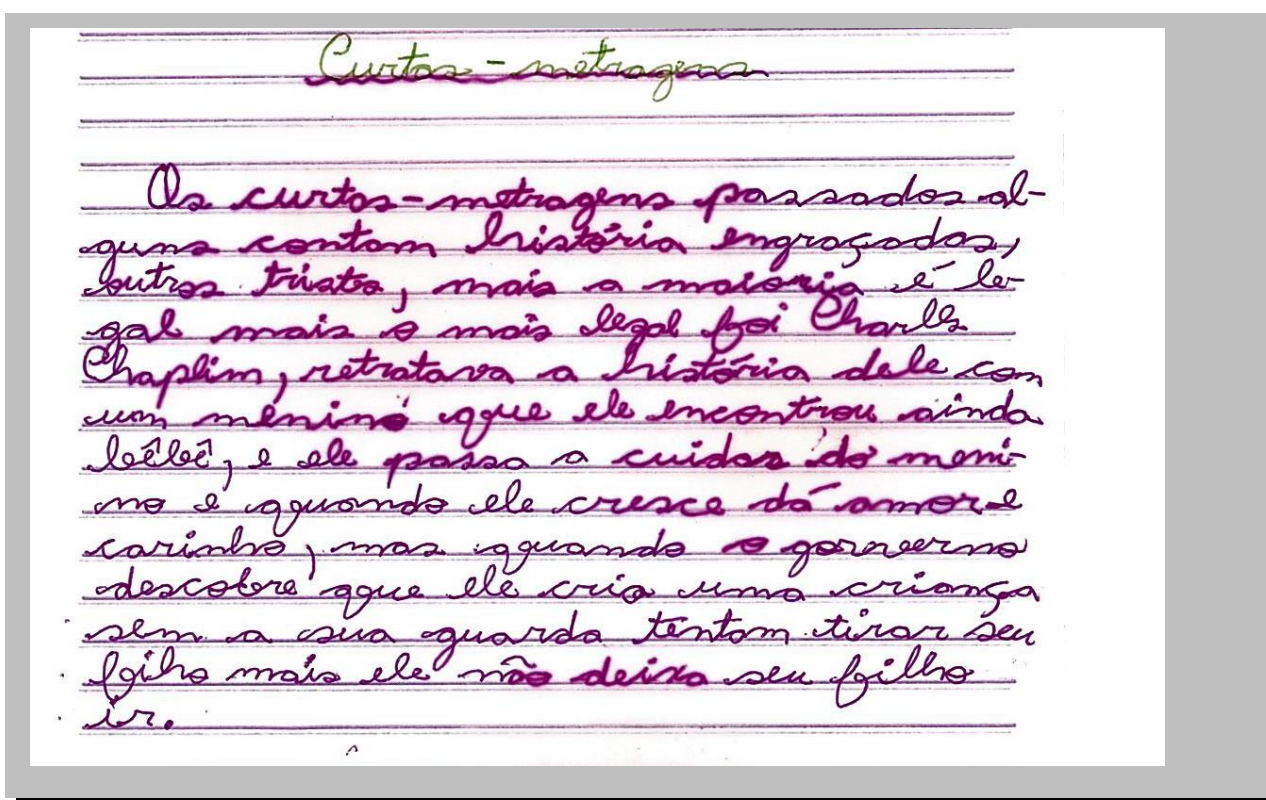 Curtas-metragens
Os curtos-metragens passados al-
guns contam história engraçadas,
outros tristes, mais a maioria é le-
gal mais o mais legal foi Charles
Chaplim, retratava a história dele com
um menino que ele encontrou ainda
bêbê, e ele passa a cuidar do meni-
no e quando ele cresce dá amor e
carinho, mas quando o governo
descobre que ele cria uma criança
sem a sua guarda tentam tirar seu
filho mais ele não deixa seu filho
ir.